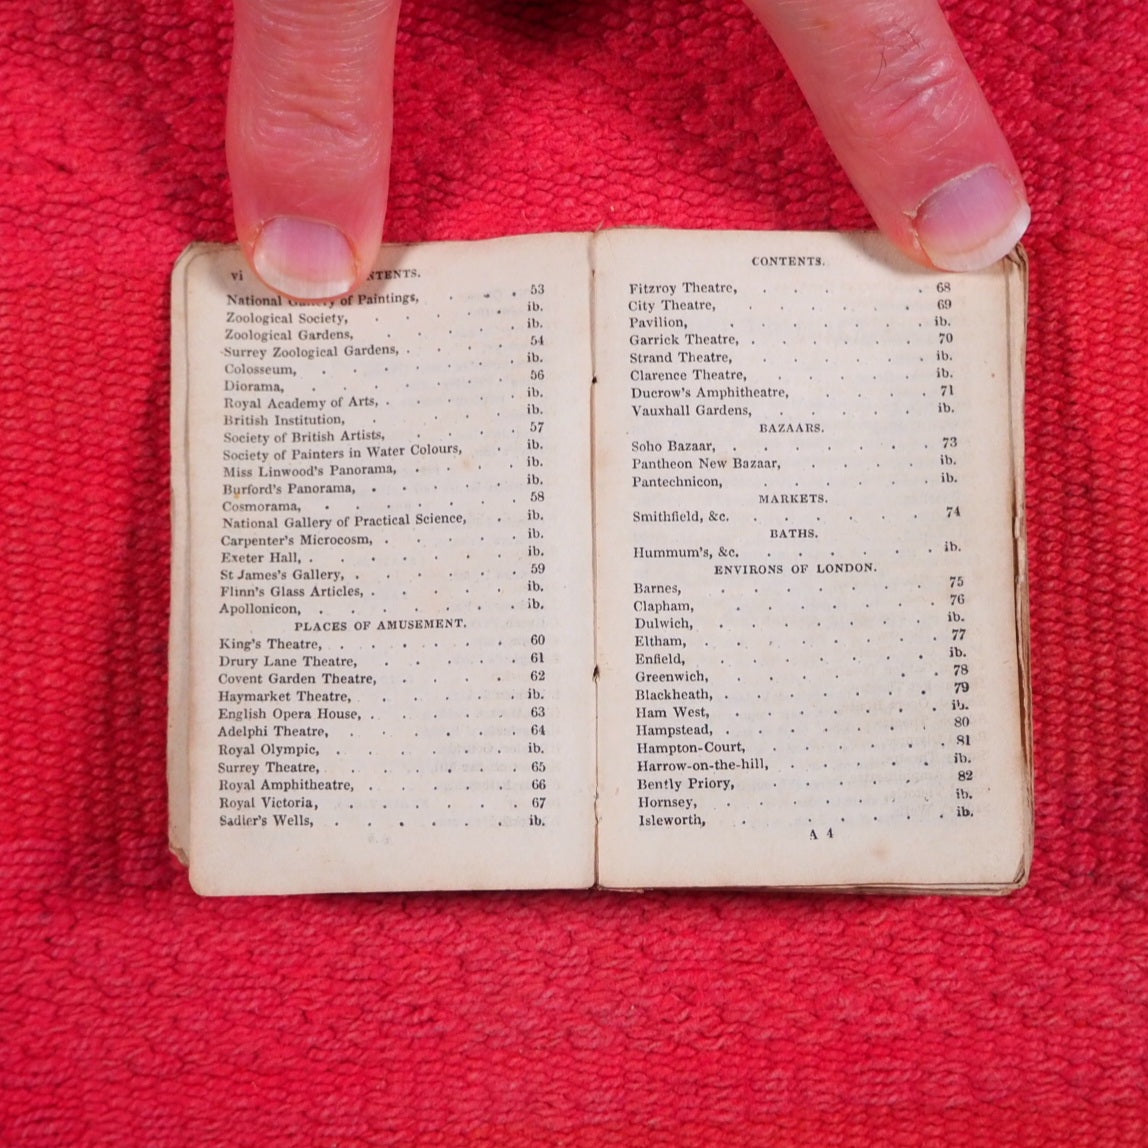 vi CONTENTS.
National Gallery of Paintings, 53
Zoological Society, ib.
Zoological Gardens, ib.
Surrey Zoological Gardens, 54
Colosseum, ib.
Diorama, 56
Royal Academy of Arts, ib.
British Institution, ib.
Society of British Artists, 57
Society of Painters in Water Colours, ib.
Miss Linwood's Panorama, ib.
Burford's Panorama, ib.
Cosmorama, 58
National Gallery of Practical Science, ib.
Carpenter's Microcosm, ib.
Exeter Hall, ib.
St James's Gallery, 59
Flinn's Glass Articles, ib.
Apollonicon, ib.
PLACES OF AMUSEMENT.
King's Theatre, 60
Drury Lane Theatre, 61
Covent Garden Theatre, 62
Haymarket Theatre, ib.
English Opera House, 63
Adelphi Theatre, 64
Royal Olympic, ib.
Surrey Theatre, 65
Royal Amphitheatre, 66
Royal Victoria, 67
Sadler's Wells, ib.
CONTENTS.
Fitzroy Theatre, 68
City Theatre, 69
Pavilion, ib.
Garrick Theatre, 70
Strand Theatre, ib.
Clarence Theatre, ib.
Ducrow's Amphitheatre, 71
Vauxhall Gardens, ib.
BAZAARS.
Soho Bazaar, 73
Pantheon New Bazaar, ib.
Pantechnicon, ib.
MARKETS.
Smithfield, &c. 74
BATHS.
Hummum's, &c. ib.
ENVIRONS OF LONDON.
Barnes, 75
Clapham, 76
Dulwich, ib.
Eltham, 77
Enfield, ib.
Greenwich, 78
Blackheath, 79
Ham West, ib.
Hampstead, 80
Hampton-Court, 81
Harrow-on-the-hill, ib.
Bently Priory, 82
Hornsey, ib.
Isleworth, ib.
A 4